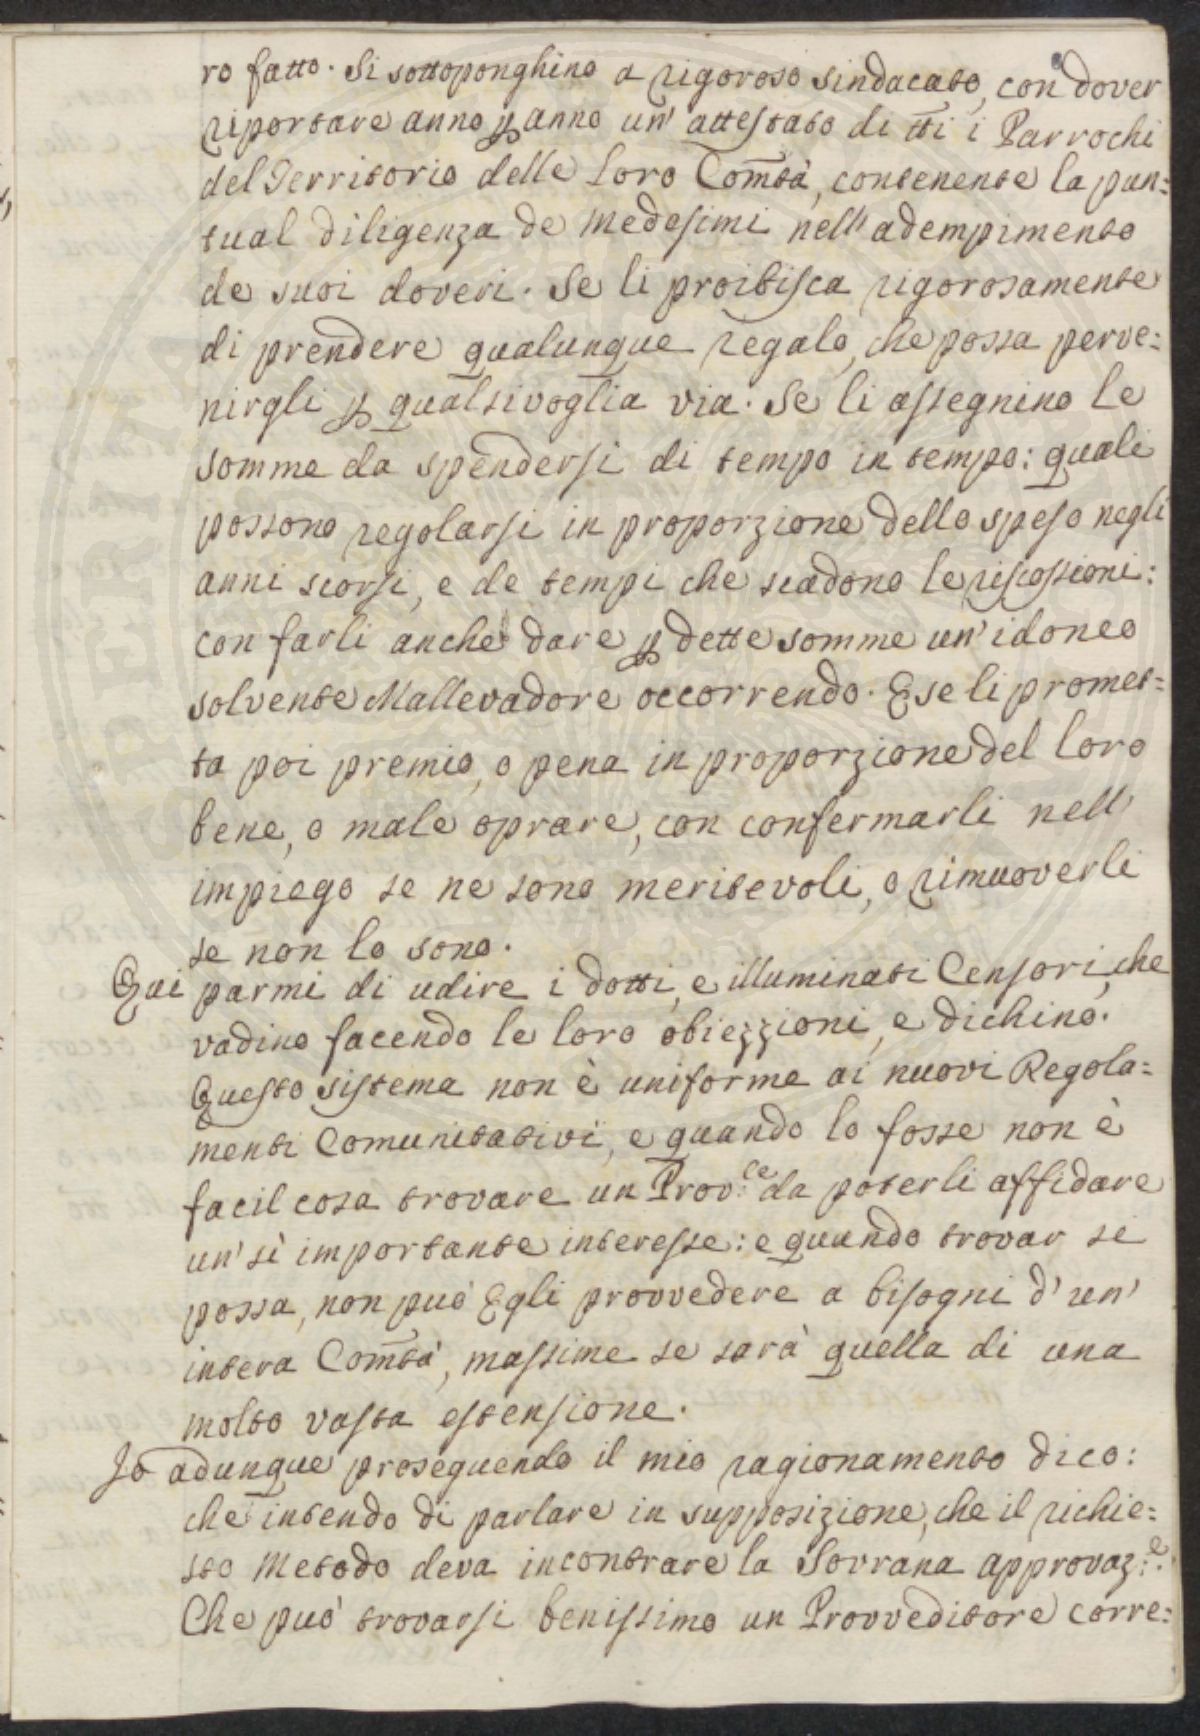 ro fatto. Si sottoponghino a rigoroso sindacato, con dover
riportare anno p anno un' attestato di tti i Parrochi
del Territorio delle Loro Comtà, contenente la pun=
tual diligenza de medesimi nell' adempimento
de suoi doveri. Se li proibisca rigorosamente
di prendere qualunque regalo, che possa perve=
nirgli p qualsivoglia via. Se li assegnino le
somme da spendersi di tempo in tempo: quali
possono regolarsi in proporzione dello speso negli
anni scorsi, e de tempi che scadono le riscossioni:
con farli anche dare p dette somme un' idoneo
solvente Mallevadore occorrendo. E se li promet=
ta poi premio, o pena in proporzione del loro
bene, o male oprare, con confermarli nell'
impiego se ne sono meritevoli, o rimuoverli
se non lo sono.
Qui parmi di udire i dotti, e illuminati Censori, che
vadino facendo le loro obiezzioni, e dichino.
Questo sistema non è uniforme ai nuovi Regola=
menti Comunitativi, e quando lo fosse non è
facil cosa trovare un Prov:re da poterli affidare
un' sì importante interesse: e quando trovar si
possa, non può Egli provvedere a bisogni d' un'
intera Comtà, massime se sarà quella di una
molto vasta estensione.
Io adunque proseguendo il mio ragionamento dico:
che intendo di parlare in supposizione, che il richie=
sto Metodo deva incontrare la Sovrana approvaz:e.
Che può trovarsi benissimo un Provveditore corre=